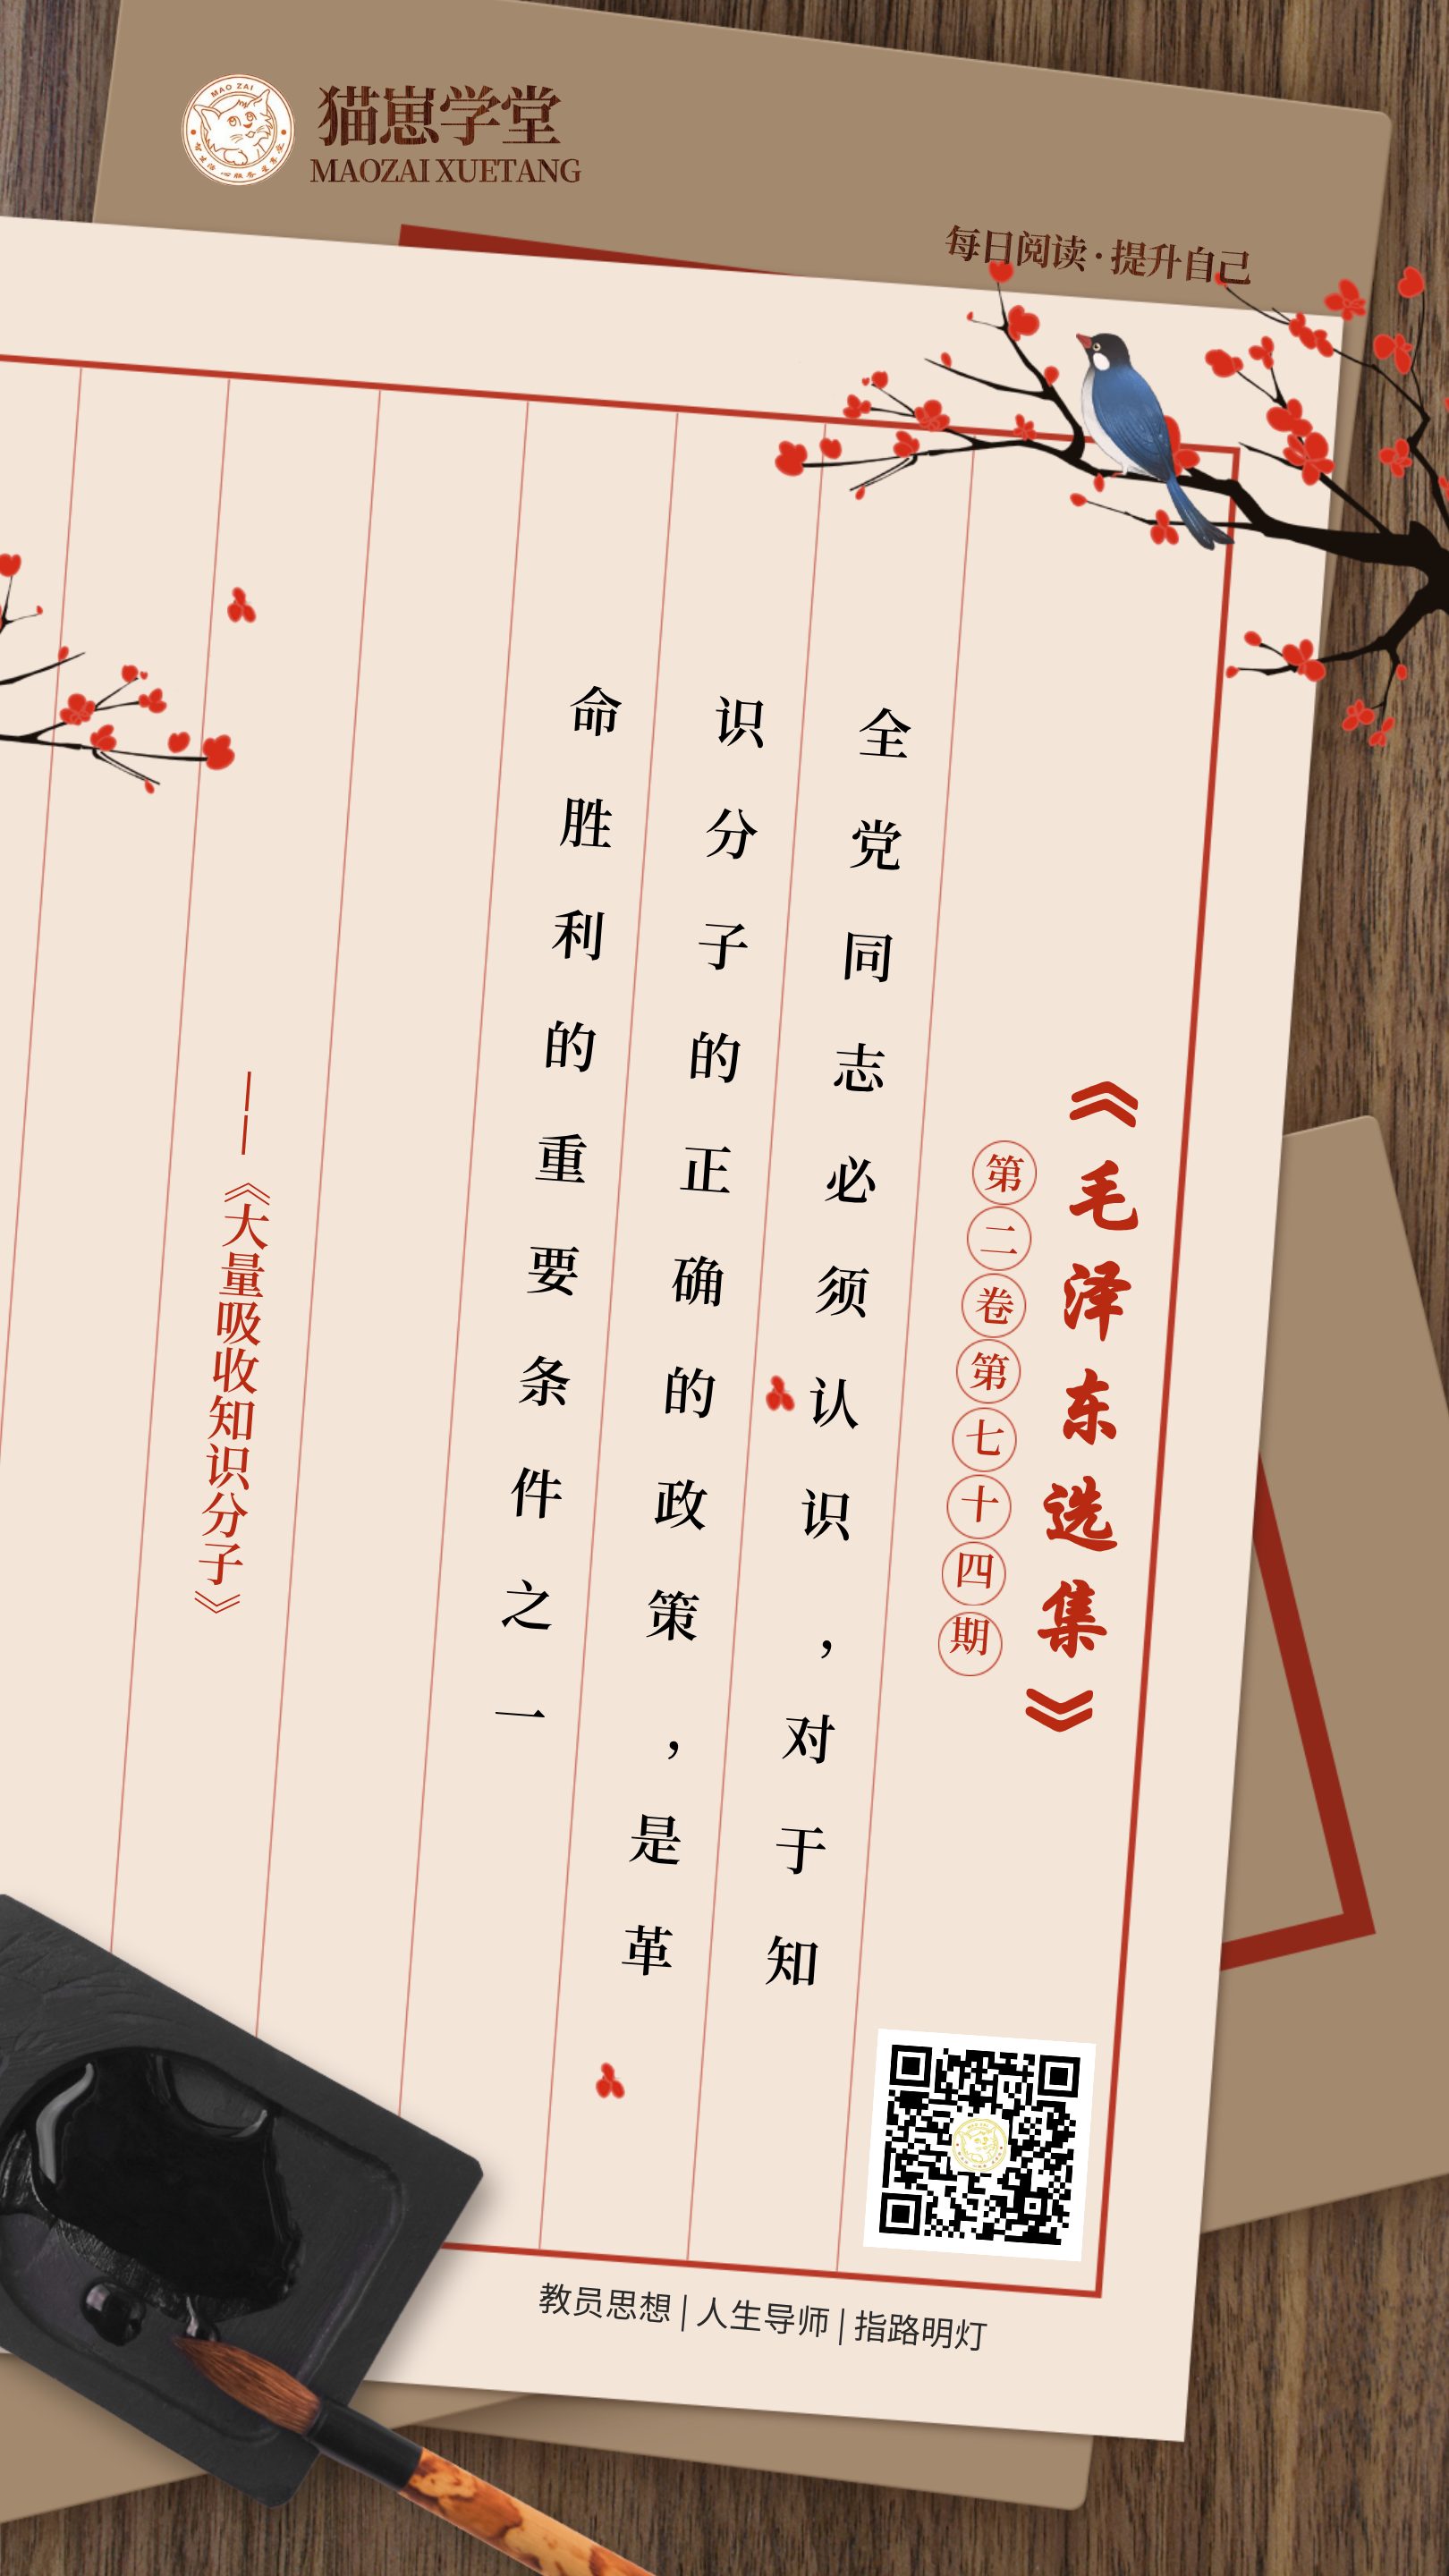 猫崽学堂
MAOZAI XUETANG
MAO ZAI
每日阅读·提升自己
《毛泽东选集》
第二卷第七十四期
全党同志必须认识，对于知
识分子的正确的政策，是革
命胜利的重要条件之一
——《大量吸收知识分子》
教员思想|人生导师|指路明灯